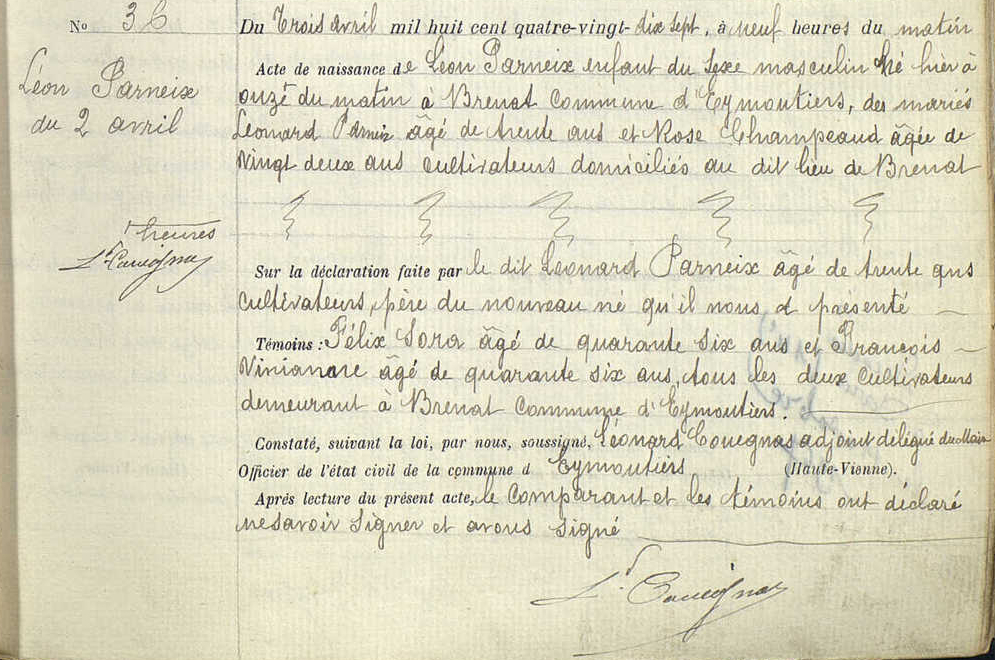 No 36
Du Trois avril mil huit cent quatre-vingt-dix sept, à neuf heures du matin
Léon Parneix
du 2 avril
Acte de naissance de Léon Parneix enfant du sexe masculin né hier à
onze du matin à Brenat Commune d'Eymoutiers, des mariés
Léonard Parneix âgé de trente ans et Rose Champeaud âgée de
vingt deux ans cultivateurs domiciliés au dit lieu de Brenat
heures
Ld Couegnas
Sur la déclaration faite par le dit Léonard Parneix âgé de trente ans
cultivateurs, père du nouveau né qu'il nous a présenté
Témoins : Félix Sora âgé de quarante six ans et François
âgé de quarante six ans, tous les deux cultivateurs
demeurant à Brenat Commune d'Eymoutiers.
Constaté, suivant la loi, par nous, soussigné, Léonard Couegnas adjoint délégué du Maire
Officier de l'état civil de la commune d Eymoutiers (Haute-Vienne).
Après lecture du présent acte, le Comparant et les témoins ont déclaré
ne savoir signer et avons signé
Ld Couegnas